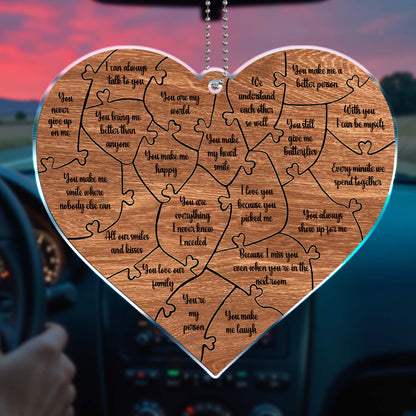 I can always
talk to you
We
understand
each other
so well
You make me a
better person
You
never
give up
on me
You bring me
better than
anyone
You are my
world
With you
I can be myself
You still
give me
butterflies
You make
my heart
smile
You make me
happy
Every minute we
spend together
You make
me smile where
nobody else can
You are
everything
I never knew
I needed
I love you
because you
picked me
You always
show up for me
All our smiles
and kisses
Because I miss you
even when you're in the
next room
You love our
family
You're
my
person
You make
me laugh